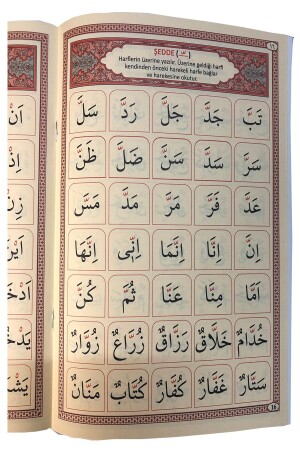 ŞEDDE (ـّـ)
Harflerin üzerine yazılır. Üzerine geldiği harfi
kendinden önceki harekeli harfe bağlar
ve harekesine okutur.
١٦
تَبَّ جَدَّ جَلَّ رَدَّ سَلَّ
سَرَّ سَدَّ سَنَّ ضَلَّ ظَنَّ
عَدَّ فَرَّ مَرَّ مَدَّ مَسَّ
اِنَّ اِنَّا اِنَّمَا اِنّٖى اِنَّهَا
اَمَّا مِنَّا عَنَّا ثُمَّ كُنَّ
خُدَّامٌ خَلَّاقٌ رَزَّاقٌ زُرَّاعٌ زُوَّارٌ
سَتَّارٌ غَفَّارٌ كُفَّارٌ كُتَّابٌ مَنَّانٌ
16